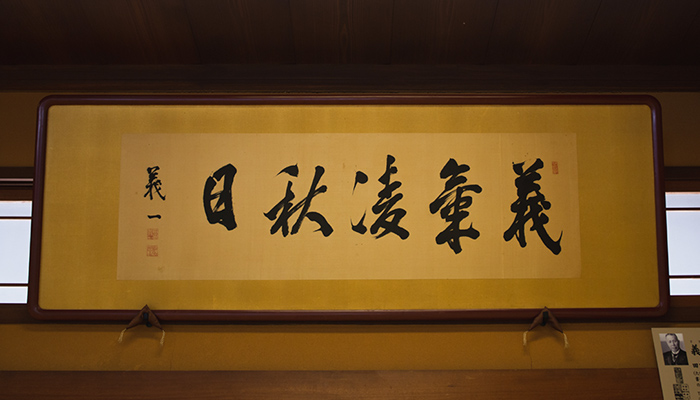 義氣凌秋日
義一
義